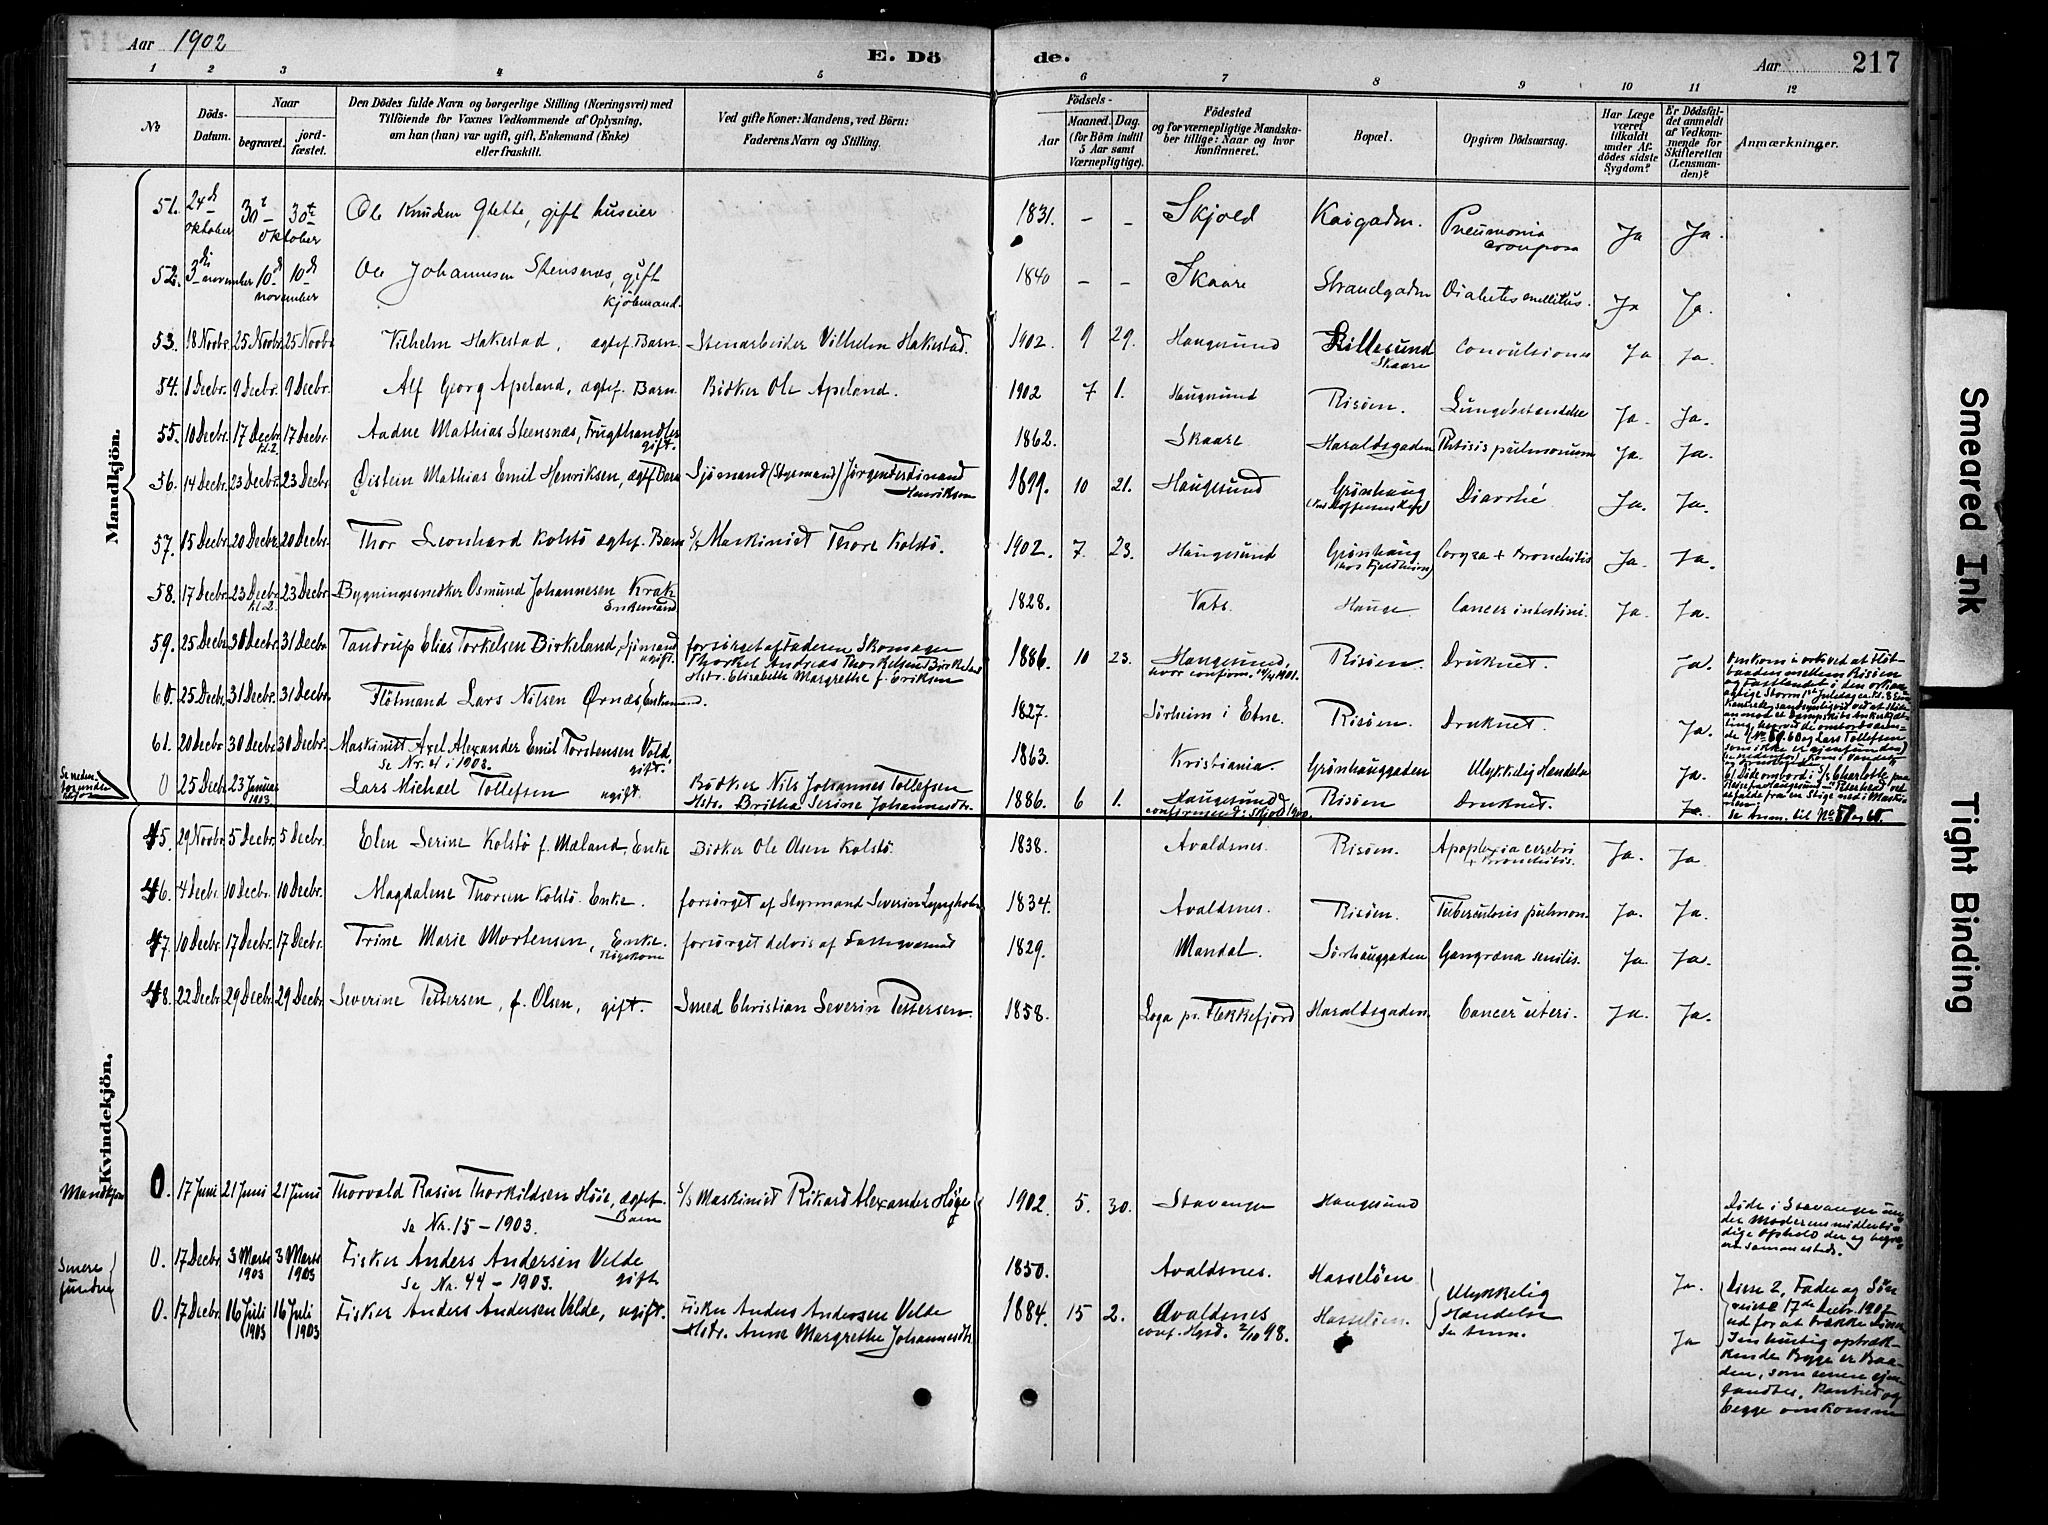 Aar 1902
E. Döde.
Aar
217
1 2 3 4 5 6 7 8 9 10 11 12
No
Döds-Datum.
Naar
begravet.
jord-fæstet.
Den Dödes fulde Navn og borgerlige Stilling (Næringsvei) med
Tilföiende for Voxnes Vedkommende af Oplysning,
om han (hun) var ugift, gift, Enkemand (Enke)
eller fraskilt.
Ved gifte Koner: Mandens, ved Börn:
Faderens Navn og Stilling.
Födsels-
Aar
Maaned. Dag.
(for Börn indtil
5 Aar samt
Værnepligtige).
Födested
og for værnepligtige Mandska-
ber tillige: Naar og hvor
konfirmeret.
Bopæl.
Opgiven Dödsaarsag.
Har Læge
været
tilkaldt
under Af-
dödes sidste
Sygdom?
Er Dödsfal-
det anmeldt
af Vedkom-
mende for
Skifteretten
(Lensman-
den)?
Anmærkninger.
Mandkjön.
51. 24de oktober 30te 30te oktober Ole Knudsen Glette, gift huseier 1831. – – Skjold Kaigaden. Pneumonia crouposa Ja Ja.
52. 3die november 10de 10de november Ole Johannesen Stensnæs, gift kjöbmand. 1840 – – Skaare Strandgaden Diabetes mellitus. Ja Ja.
53. 18 Novbr. 25 Novbr. 25 Novbr. Vilhelm Hakestad, ægtef. Barn. Stenarbeider Vilhelm Hakestad. 1902. 9 29. Haugesund Lillesund Skaare Convulsiones Ja Ja.
54. 1 Decbr. 9 Decbr. 9 Decbr. Alf Georg Apeland, ægtef. Barn. Bödker Ole Apeland. 1902 7 1. Haugesund Risöen. Lungebetændelse Ja. Ja.
55. 10 Decbr. 17 Decbr. kl. 2 17 Decbr. Aadne Mathias Steensnæs, Frugthandler gift. 1862. Skaare Haraldsgaden Phtisis pulmonum Ja. Ja.
56. 14 Decbr. 23 Decbr. 23 Decbr. Øistein Mathias Emil Henriksen, ægtf. Barn Sjömand (Styrmand) Jørgen Ferdinand Henriksen 1899. 10 21. Haugesund Grönhaug Diarrhé Ja. Ja.
57. 15 Decbr. 20 Decbr. 20 Decbr. Thor Leonhard Kolstö ægtef. Barn S/s Maskinist Thore Kolstö. 1902. 7 23. Haugesund Grönhaug (hos Fjeldheim) Coryza + Bronchitis Ja. Ja.
58. 17 Decbr. 23 Decbr. kl. 2. 23 Decbr. Bygningssnedker Osmund Johannesen Krak Enkemand 1828. Vats. Hauge Cancer intestini. Ja. Ja.
59. 25 Decbr. 30 Decbr. 31 Decbr. Tandrup Elias Torkelsen Birkeland, Sjömand ugift. forsørget af Faderen Skomager Thorkel Andreas Thorkelsen Birkeland Hstr. Elisabeth Margrethe f. Eriksen 1886. 10 23. Haugesund, hvor confirm. 14/4 1901. Risöen. Druknet. Ja.
60. 25 Decbr. 31 Decbr. 31 Decbr. Flötmand Lars Nilsen Ørnæs, Enkemand. 1827. Sörheim i Etne. Risöen. Druknet. Ja.
Omkom i orkved at Flöt-
baaden mellem Risöen
og Fastlandet i den orkan-
agtige Storm 1ste Juledag
61. 20 Decbr. 30 Decbr. 30 Decbr. Maskinist Axel Alexander Emil Torstensen Veld, gift. 1863. Kristiania. Grönhauggaden Ulykkelig Hændelse Ja.
Se Nr. 21 i 1903.
0 25 Decbr. 23 Januar 1903 Lars Michael Tollefsen ugift. Bödker Nils Johannes Tollefsen Hstr. Britha Serine Johannesdtr. 1886. 6 1. Haugesund confirmeret i Skjold 1900. Risöen Druknet. Ja.
Se Anm. til No 59 og 60.
Kvindekjön.
45. 29 Novbr. 5 Decbr. 5 Decbr. Elen Serine Kolstö f. Mæland, Enke Bödker Ole Olsen Kolstö. 1838. Avaldsnes. Risöen. Apoplexia cerebri + Bronchitis. Ja. Ja.
46. 4 Decbr. 10 Decbr. 10 Decbr. Magdalene Thorsen Kolstö. Enke. forsörget af Styrmand Severin Lyngholm 1834. Avaldsnes. Risöen. Tuberculosis pulmon. Ja. Ja.
47. 10 Decbr. 17 Decbr. 17 Decbr. Trine Marie Mortensen, Enke. Kogekone forsörget delvis af Fattigvæsenet 1829. Mandal. Sörhauggaden Gangræna senilis. Ja. Ja.
48. 22 Decbr. 29 Decbr. 29 Decbr. Severine Pettersen, f. Olsen, gift. Smed Christian Severin Pettersen. 1858. Loga pr. Flekkefjord Haraldsgaden. Cancer uteri. Ja. Ja.
Mandkjön 0. 17 Juni 21 Juni 21 Juni Thorvald Rasin Thorkildsen Höie, ægtef. Barn S/s Maskinist Rikard Alexander Höge 1902. 5. 30. Stavanger Haugesund
Se Nr. 15 – 1903.
Döde i Stavanger un-
der Moderens midlerti-
dige Ophold der og begra-
ven sammesteds.
Senere fundne
0. 17 Decbr. 3 Marts 1903 3 Marts 1903 Fisker Anders Andersen Velde gift 1850. Avaldsnes. Hasselöen Ja.
Se Nr. 44 – 1903.
0. 17 Decbr. 16 Juli 1903 16 Juli 1903 Fisker Anders Andersen Velde, ugift. Fisker Anders Andersen Velde Hstr. Anne Margrethe Johannesdtr. 1884. 15 2. Avaldsnes conf. Hgsd. 2/10 98. Hasselöen. Ulykkelig Hændelse Se Anm. Ja
Disse 2, Fader og Sön
reiste 17de Decbr. 1902
ud for at trække
I en hurtig optræk-
kende Bygge er Baa-
den, som senere igjen-
fandtes, kantret og
begge omkomne
Smeared Ink
Tight Binding